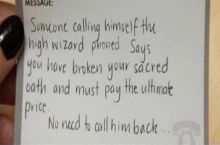 MESSAGE:
Someone calling himself the
high wizard phoned. Says
you have broken your sacred
oath and must pay the ultimate
price.
No need to call him back...